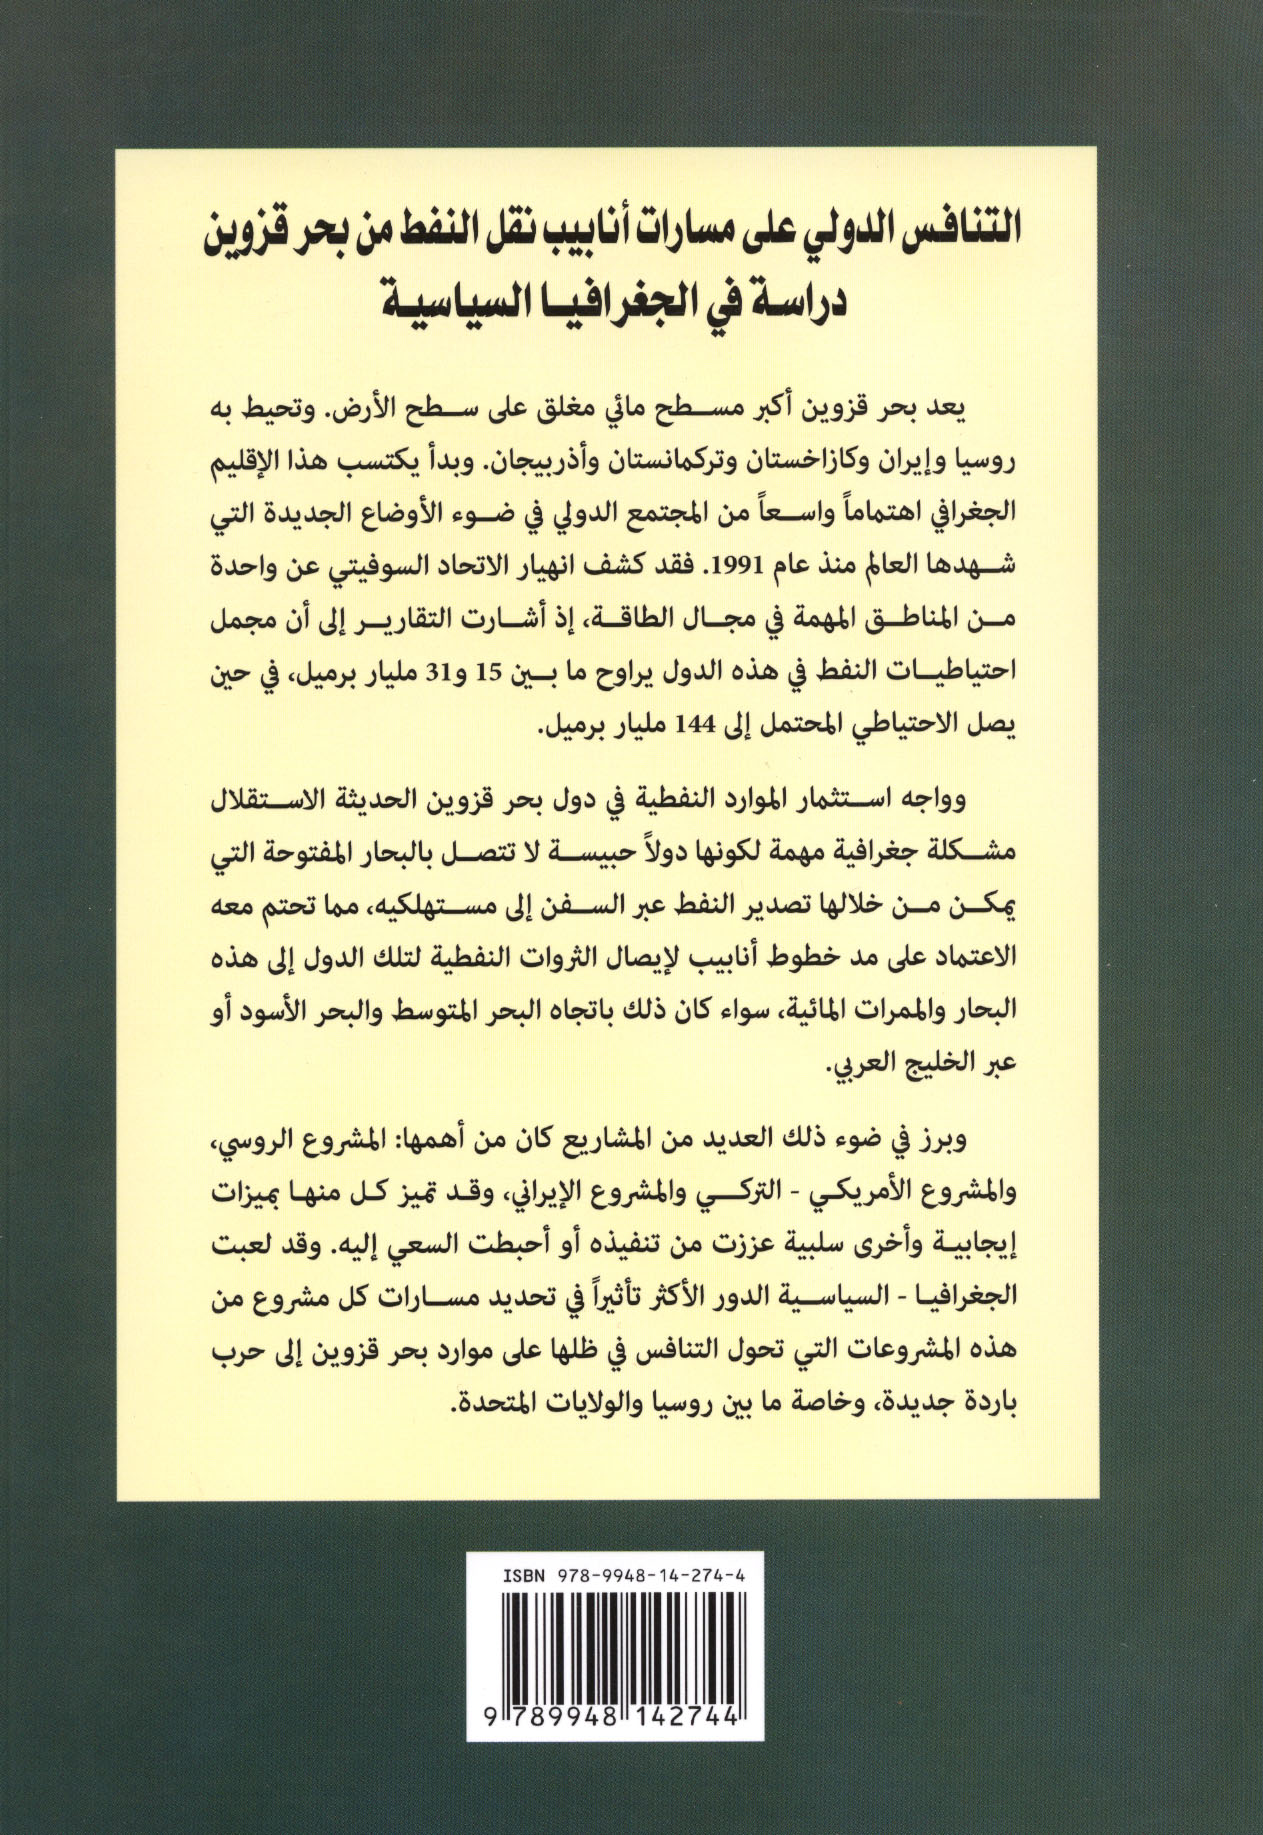 التنافس الدولي على مسارات أنابيب نقل النفط من بحر قزوين
دراسة في الجغرافيا السياسية
يعد بحر قزوين أكبر مسطح مائي مغلق على سطح الأرض. وتحيط به
روسيا وإيران وكازاخستان وتركمانستان وأذربيجان. وبدأ يكتسب هذا الإقليم
الجغرافي اهتماماً واسعاً من المجتمع الدولي في ضوء الأوضاع الجديدة التي
شهدها العالم منذ عام 1991. فقد كشف انهيار الاتحاد السوفيتي عن واحدة
من المناطق المهمة في مجال الطاقة، إذ أشارت التقارير إلى أن مجمل
احتياطيات النفط في هذه الدول يراوح ما بين 15 و31 مليار برميل، في حين
يصل الاحتياطي المحتمل إلى 144 مليار برميل.
وواجه استثمار الموارد النفطية في دول بحر قزوين الحديثة الاستقلال
مشكلة جغرافية مهمة لكونها دولاً حبيسة لا تتصل بالبحار المفتوحة التي
يمكن من خلالها تصدير النفط عبر السفن إلى مستهلكيه، مما تحتم معه
الاعتماد على مد خطوط أنابيب لإيصال الثروات النفطية لتلك الدول إلى هذه
البحار والممرات المائية، سواء كان ذلك باتجاه البحر المتوسط والبحر الأسود أو
عبر الخليج العربي.
وبرز في ضوء ذلك العديد من المشاريع كان من أهمها: المشروع الروسي،
والمشروع الأمريكي - التركي والمشروع الإيراني، وقد تميز كل منها بميزات
إيجابية وأخرى سلبية عززت من تنفيذه أو أحبطت السعي إليه. وقد لعبت
الجغرافيا - السياسية الدور الأكثر تأثيراً في تحديد مسارات كل مشروع من
هذه المشروعات التي تحول التنافس في ظلها على موارد بحر قزوين إلى حرب
باردة جديدة، وخاصة ما بين روسيا والولايات المتحدة.
ISBN 978-9948-14-274-4
9 789948 142744